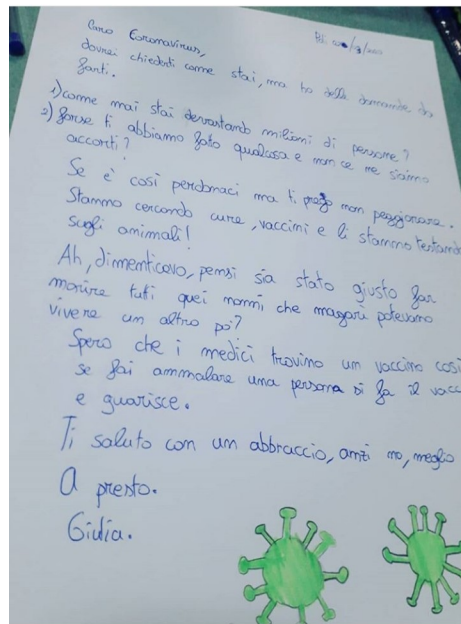 Caro Coronavirus,
dovrei chiederti come stai, ma ho delle domande da
farti.
1) come mai stai devastando milioni di persone?
2) forse ti abbiamo fato qualcosa e non ce ne siamo
accorti?
Se è così perdonaci ma ti prego non peggiorare.
Stanno cercando cure, vaccini e li stanno testando
sugli animali!
Ah, dimenticavo, pensi sia stato giusto far
morire tuti quei nonni che magari potevamo
vivere un altro pò?
Spero che i medici trovino un vaccino così
se fai ammalare una persona si fa il
e guarisce.
Ti saluto con un abbraccio, anzi no, meglio
A presto.
Giulia.